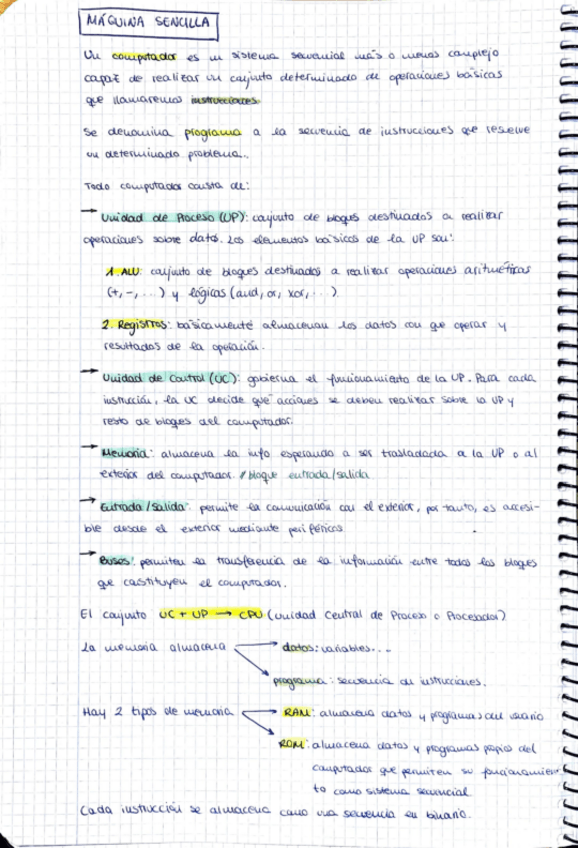 MÁQUINA SENCILLA
Un computador es un sistema secuencial más o menos complejo
capaz de realizar un conjunto determinado de operaciones básicas
que llamaremos instrucciones.
Se denomina programa a la secuencia de instrucciones que resuelve
un determinado problema.
Todo computador consta de:
→ Unidad de Proceso (UP): conjunto de bloques destinados a realizar
operaciones sobre datos. Los elementos básicos de la UP son:
1. ALU: conjunto de bloques destinados a realizar operaciones aritméticas
(+, -, ...) y lógicas (and, or, xor, ...).
2. Registros: básicamente almacenan los datos con que operar y
resultados de la operación.
→ Unidad de Control (UC): gobierna el funcionamiento de la UP. Para cada
instrucción, la UC decide qué acciones se deben realizar sobre la UP y
resto de bloques del computador.
→ Memoria: almacena la info esperando a ser trasladada a la UP o al
exterior del computador. // bloque entrada/salida
→ Entrada/Salida: permite la comunicación con el exterior, por tanto, es accesi-
ble desde el exterior mediante periféricos
→ Buses: permiten la transferencia de la información entre todos los bloques
que constituyen el computador.
El conjunto UC + UP → CPU (Unidad Central de Proceso o Procesador)
La memoria almacena → datos: variables....
→ programa: secuencia de instrucciones.
Hay 2 tipos de memoria → RAM: almacena datos y programas del usuario
→ ROM: almacena datos y programas propios del
computador que permiten su funcionamien-
to como sistema secuencial
Cada instrucción se almacena como una secuencia en binario.